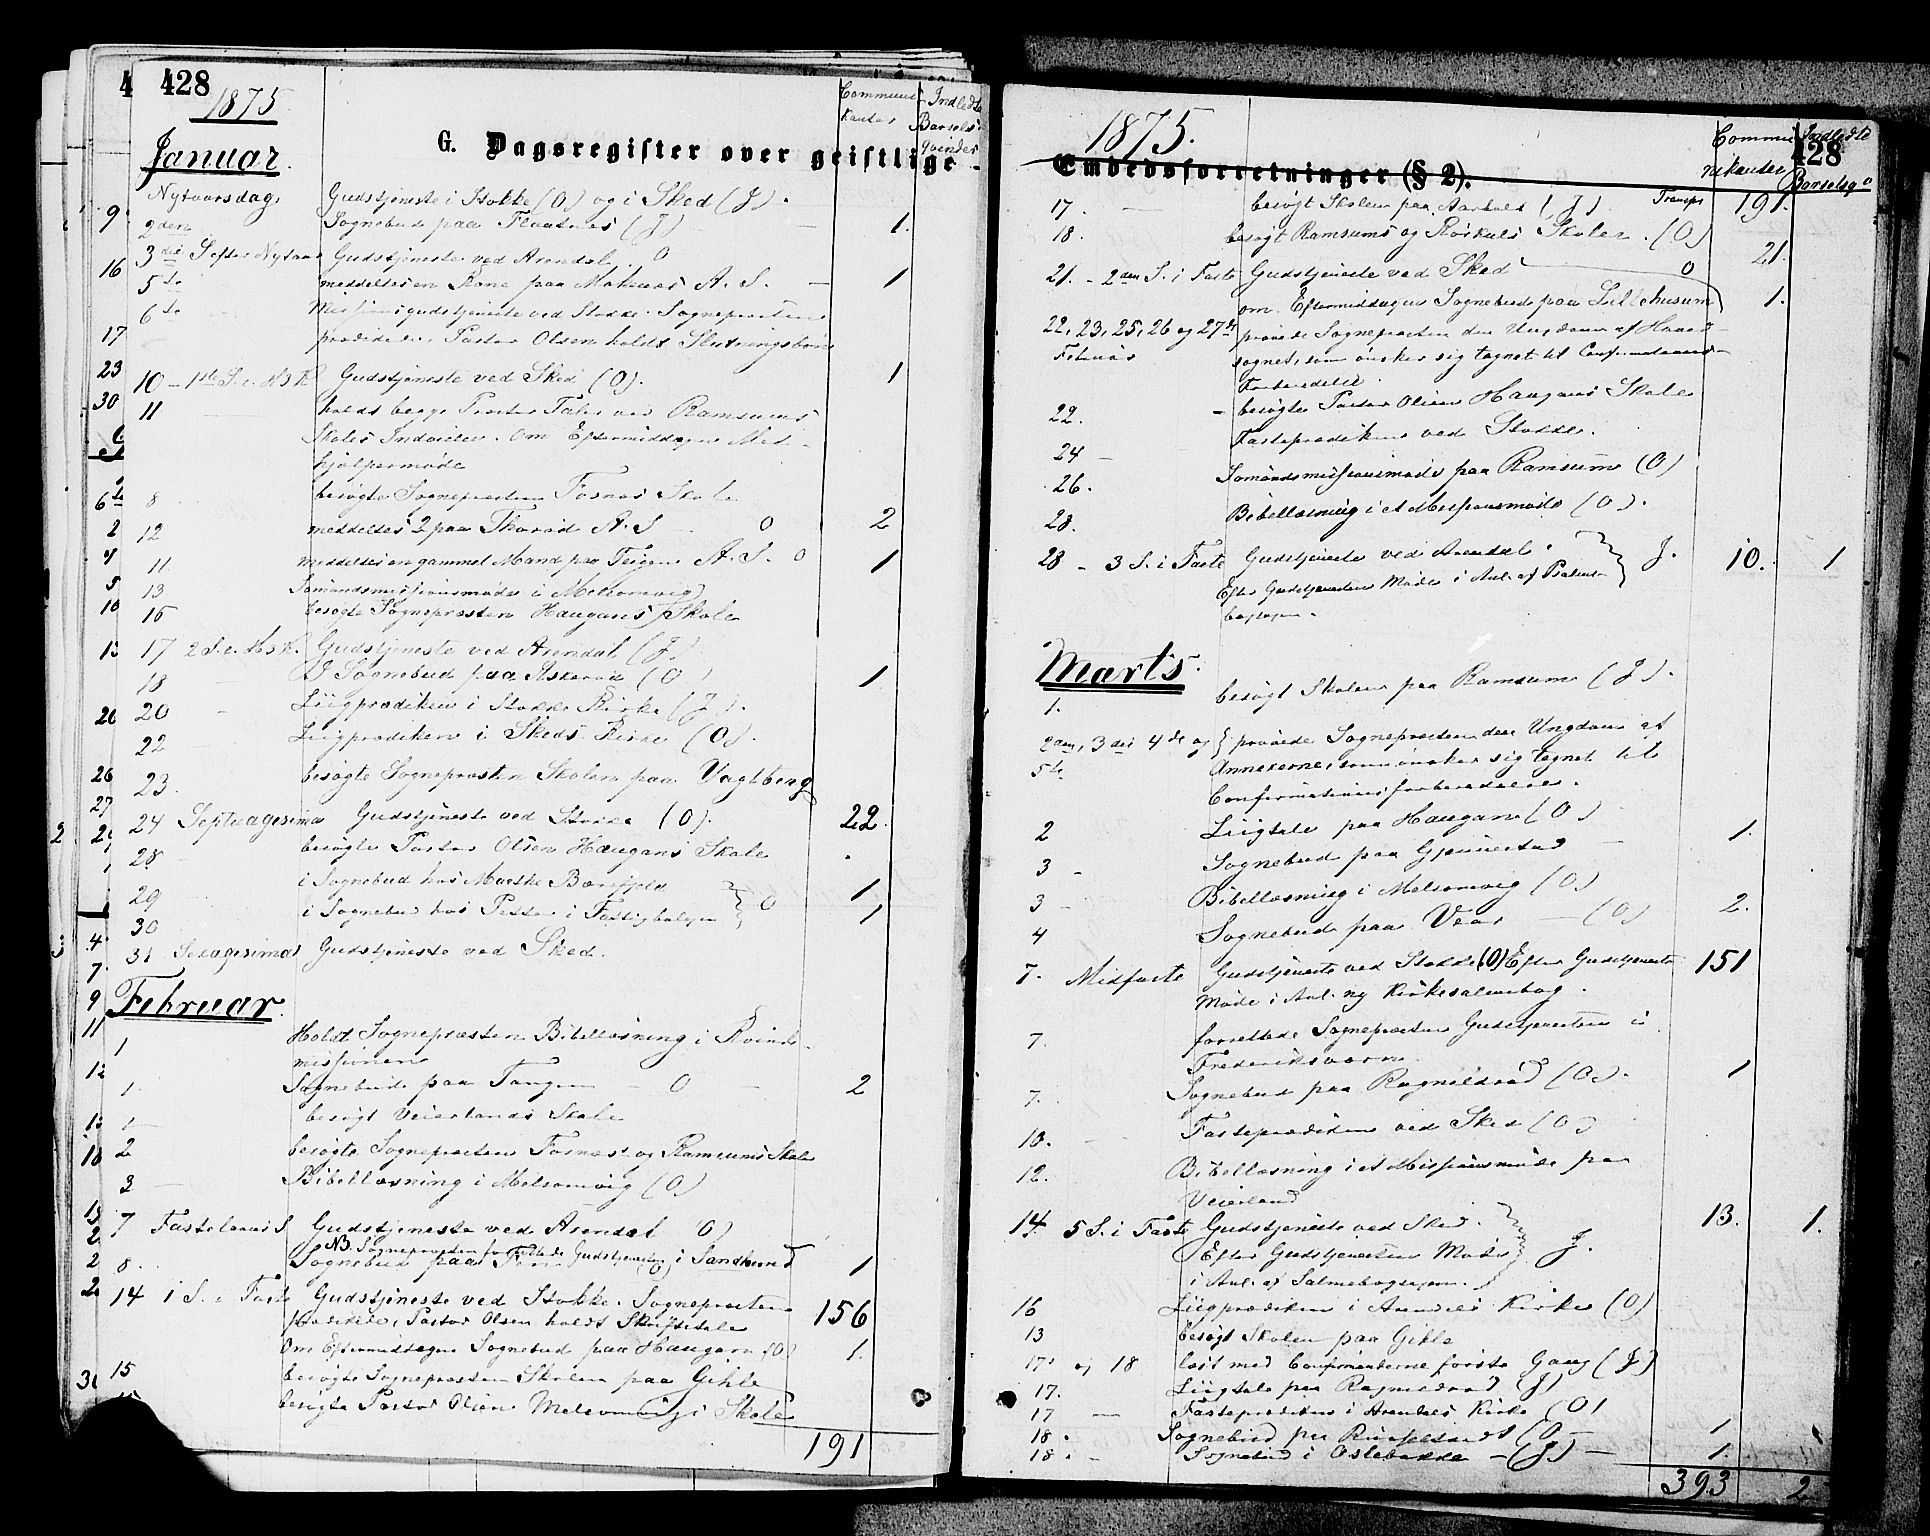 428
1875
Commu-
nikanter
Indledte
Barsels-
qvinder
G. Dagsregister over geistlige
Januar.
Nytaarsdag. Gudstjeneste i Stokke (O) og i Sked (J).
2den Sognebud paa Flaatnes (J) 1.
3die S. efter Nytaar Gudstjeneste ved Arendal. O
5te meddeltes en Kone paa A. S. 1
6te Missionsgudstjeneste ved Stokke. Sognepræsten
prædikede, Pastor Olsen holdt Slutningsbøn
10 - 1ste S. e. H3K Gudstjeneste ved Sked (O). 1
11 holdt begge Præster Tale ved Ramsums
Skoles Indvielse. Om Eftermiddagen Med-
hjælpermøde
8 besøgte Sognepræsten Fosnæs Skole
12 meddeltes 2 paa A. S. O 2
11 meddeltes en gammel Mand paa Teigen A. S. O 1
13 Sømandsmissionsmøde i Melsomvig
15 besøgte Sognepræsten Haugans Skole
17 2 S. e. H3K. Gudstjeneste ved Arendal (J).
18 Sognebud paa Askerød (O) 1
20 Liigprædiken i Stokke Kirke (J).
22 Liigprædiken i Skeds Kirke (O).
23. besøgte Sognepræsten Skolen paa Vagtberg
24 Septuagesima Gudstjeneste ved Stokke (O). 22.
28 besøgte Pastor Olsen Haugans Skole
29 i Sognebud hos 1
30 i Sognebud hos Petter i O 1
31 Sexagesima Gudstjeneste ved Sked.
Februar.
1 Holdt Sognepræsten Bibellæsning i Kvinde-
missionen
1 Sognebud paa Tangen - O 2
1 besøgt Veierlands Skole
2 besøgte Sognepræsten Fosnæs og Ramsums Skole
3 Bibellæsning i Melsomvig (O)
7 Fastelavns S. Gudstjeneste ved Arendal O)
NB. Sognepræsten forrettede Gudstjenesten i Sandherred
8. Sognebud paa Fen (O) 1
14 1 S. i Faste Gudstjeneste ved Stokke. Sognepræsten
prædikede, Pastor Olsen holdt Skriftetale 156
Om Eftermiddagen Sognebud paa Haugan (O) 1.
15 besøgte Sognepræsten Skolen paa Gihle
besøgte Pastor Olsen Melsomvigs Skole
191
1875.
Commu-
nikanter
Indledte
Barselsq.
428
Embedsforretninger (§ 2).
17. besøgt Skolen paa Aarholt (J) Transp. 191.
18. besøgt Ramsums og Rørkuls Skoler. (O)
21. - 2den S. i Faste Gudstjeneste ved Sked O 21.
om Eftermiddagen Sognebud paa Lillehusum 1.
22, 23, 25, 26 og 27de prøvede Sognepræsten den Ungdom af Hoved-
Februar sognet, som ønsker sig tegnet til Confirmations-
forberedelse.
22. - besøgte Pastor Olsen Haugans Skole
24 - Fasteprædiken ved Stokke.
26. Sømandsmissionsmøde paa Ramsum (O)
28. Bibellæsning i et Missionsmøde (O).
28 - 3 S. i Faste Gudstjeneste ved Arendal. J. 10. 1
Efter Gudstjenesten Møde i Anl. af Psalme-
bogsagen.
Marts.
1. besøgt Skolen paa Ramsum (J).
2den, 3die 4de og prøvede Sognepræsten den Ungdom af
5te Annexerne, som ønsker sig tegnet til
Confirmationsforberedelse.
2 Liigtale paa Haugan (O)
3 - Sognebud paa Gjennestad 1.
3 - Bibellæsning i Melsomvig (O)
4 Sognebud paa Vear - (O) 2.
7. Midfaste Gudstjeneste ved Stokke (O) Efter Gudstjeneste 151
Møde i Anl. ny Kirkesalmebog.
7. forrettede Sognepræsten Gudstjenesten i
Frederiksværn.
7. Sognebud paa Ragnildrød (O). 1
10. Fasteprædiken ved Sked (O)
12. Bibellæsning i et Missionsmøde paa
Veierland
14. 5 S. i Faste Gudstjeneste ved Sked. 13. 1.
Efter Gudstjenesten Møde J.
i Anl. af Salmebogsagen.
16 Liigprædiken i Arendals Kirke (O)
13 besøgt Skolen paa Gihle
17. og 18 læst med Confirmanterne første Gang (J)
17. Liigtale paa Ragnildrød (J)
17 Fasteprædiken i Arendals Kirke (O)
18. Sognebud paa (O - 1
18. - Sognebud i Oslebakke - (J) - 1.
393 2